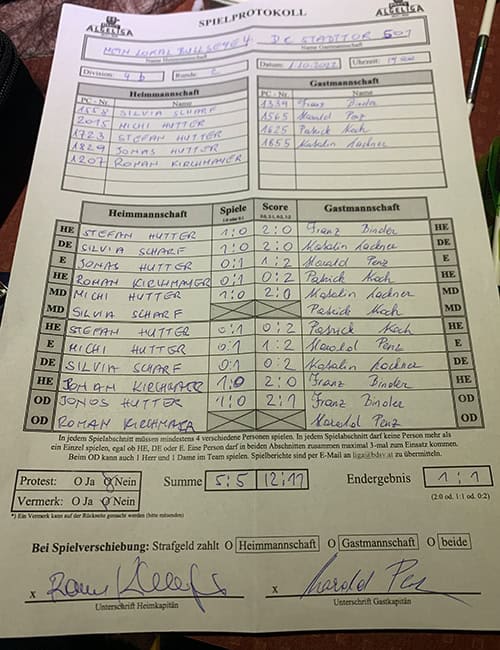 ALGELIGA
SPIELPROTOKOLL
ALGELIGA
MEIN LOKAL BULLSEYE 4 : DC STADTTOR 501
Name Heimmannschaft Name Gastmannschaft
Division: 4 b Runde: 2 Datum: 1.10.2022 Uhrzeit: 19 00
Heimmannschaft
PC - Nr. Name
1558 SILVIA SCHARF
2015 MICHI HUTTER
1723 STEFAN HUTTER
1829 JONAS HUTTER
1207 ROMAN KIRCHMAYER
Gastmannschaft
PC - Nr. Name
1339 Franz Binder
1565 Harold Penz
1625 Patrick Koch
1855 Katalin Lackner
Heimmannschaft Spiele Score Gastmannschaft
HE STEFAN HUTTER 1:0 2:0 Franz Binder HE
DE SILVIA SCHARF 1:0 2:0 Katalin Lackner DE
E JONAS HUTTER 0:1 1:2 Harold Penz E
HE ROMAN KIRCHMAYER 0:1 0:2 Patrick Koch HE
MD MICHI HUTTER 1:0 2:0 Katalin Lackner MD
MD SILVIA SCHARF Patrick Koch MD
HE STEFAN HUTTER 0:1 0:2 Patrick Koch HE
E MICHI HUTTER 0:1 1:2 Harold Penz E
DE SILVIA SCHARF 0:1 0:2 Katalin Lackner DE
HE ROMAN KIRCHMAYER 1:0 2:0 Franz Binder HE
OD JONAS HUTTER 1:0 2:1 Franz Binder OD
OD ROMAN KIRCHMAYER Harold Penz OD
In jedem Spielabschnitt müssen mindestens 4 verschiedene Personen spielen. In jedem Spielabschnitt darf keine Person mehr als
ein Einzel spielen, egal ob HE, DE oder E. Eine Person darf in beiden Abschnitten zusammen maximal 3-mal zum Einsatz kommen.
Beim OD kann auch 1 Herr und 1 Dame im Team spielen. Spielberichte sind per E-Mail an liga@bdsv.at zu übermitteln.
Protest: O Ja O Nein Summe 5:5 12:11 Endergebnis 1:1
Vermerk: O Ja O Nein (2:0 od. 1:1 od. 0:2)
*) Ein Vermerk kann auf der Rückseite gemacht werden (bitte mitsenden)
Bei Spielverschiebung: Strafgeld zahlt O Heimmannschaft O Gastmannschaft O beide
x x Harold Penz
Unterschrift Heimkapitän Unterschrift Gastkapitän